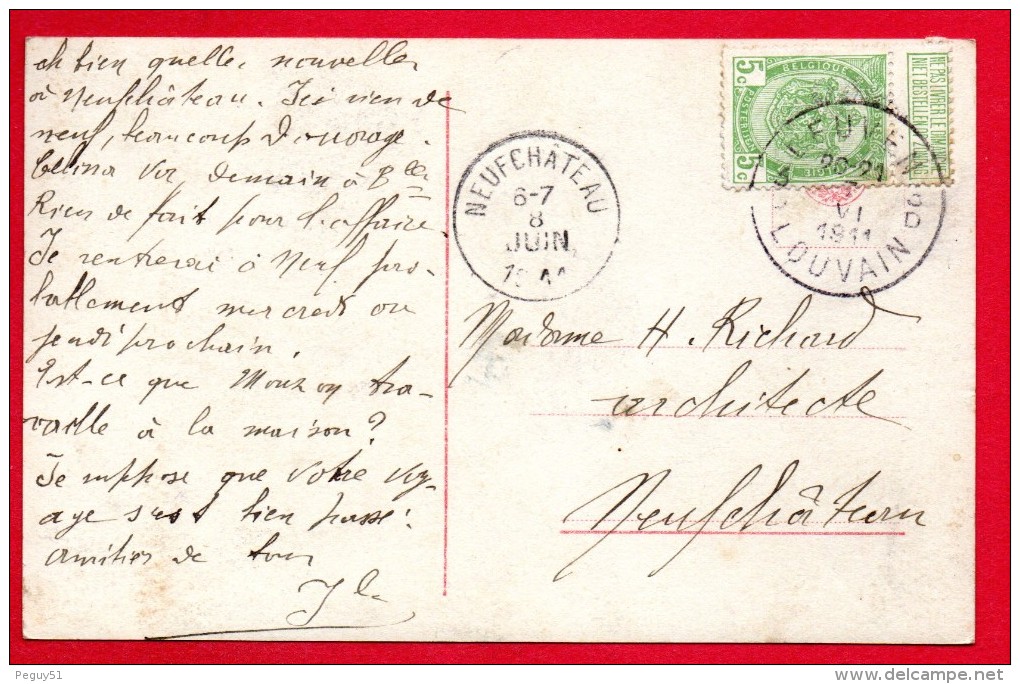 eh bien quelles nouvelles
à Neufchâteau. Ici rien de
neuf, beaucoup d'ouvrage.
va, demain à Blles
Rien de fait pour l'affaire.
Je rentrerai à Neuf pro-
bablement mercredi ou
jeudi prochain.
Est-ce que Mouzon tra-
vaille à la maison?
Je suppose que votre voy-
age s'est bien passé.
amitiés de tous
BELGIQUE
5c
5c
NE PAS LIVRER LE DIMANCHE
NIET BESTELLEN OP ZONDAG
LEUVEN
20-21
VI
1911
LOUVAIN
NEUFCHÂTEAU
6-7
8
JUIN
Madame H. Richard
architecte
Neufchâteau
Peguy51
delcampe.net